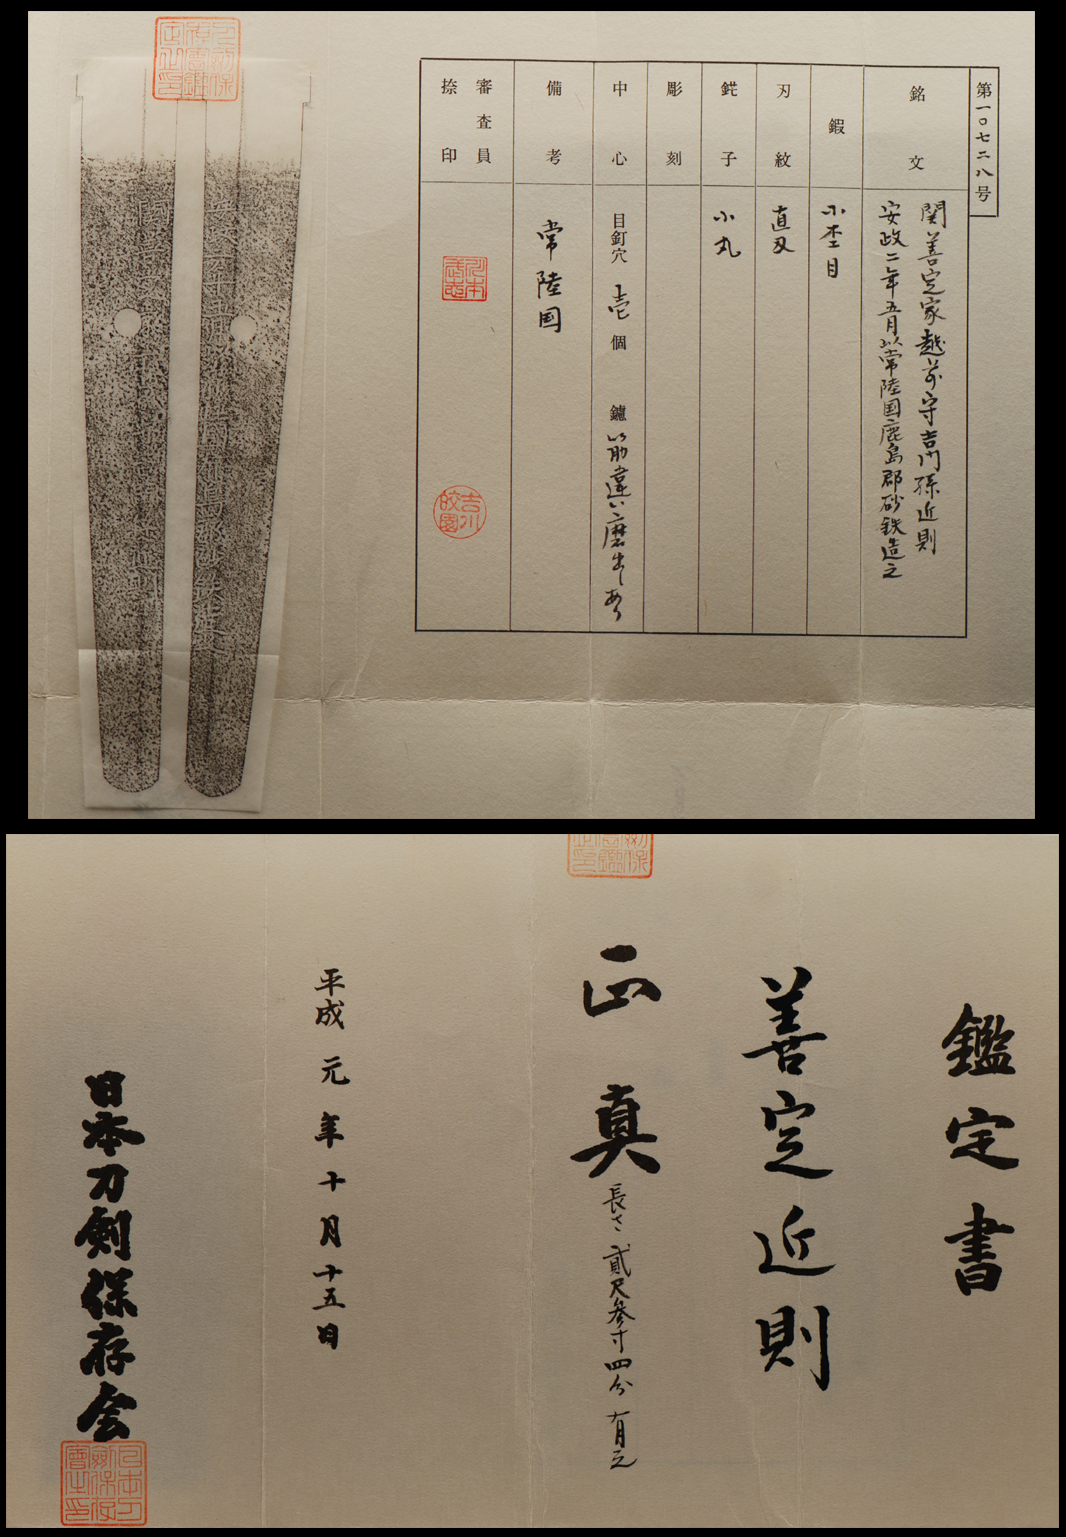 第一〇七二八号
銘文
関善定家越前守吉門孫近則
安政二年五月以常陸国鹿島郡砂鉄造之
鍜
小杢目
刃紋
直刃
鋩子
小丸
彫刻
中心
目釘穴 壱 個 鑢 筋違い磨出しあり
備考
常陸国
審査員
捺印
吉川皎園
鑑定書
善定近則
正真
長さ 貳尺参寸四分 有之
平成 元 年 十 月 十五 日
日本刀剣保存会